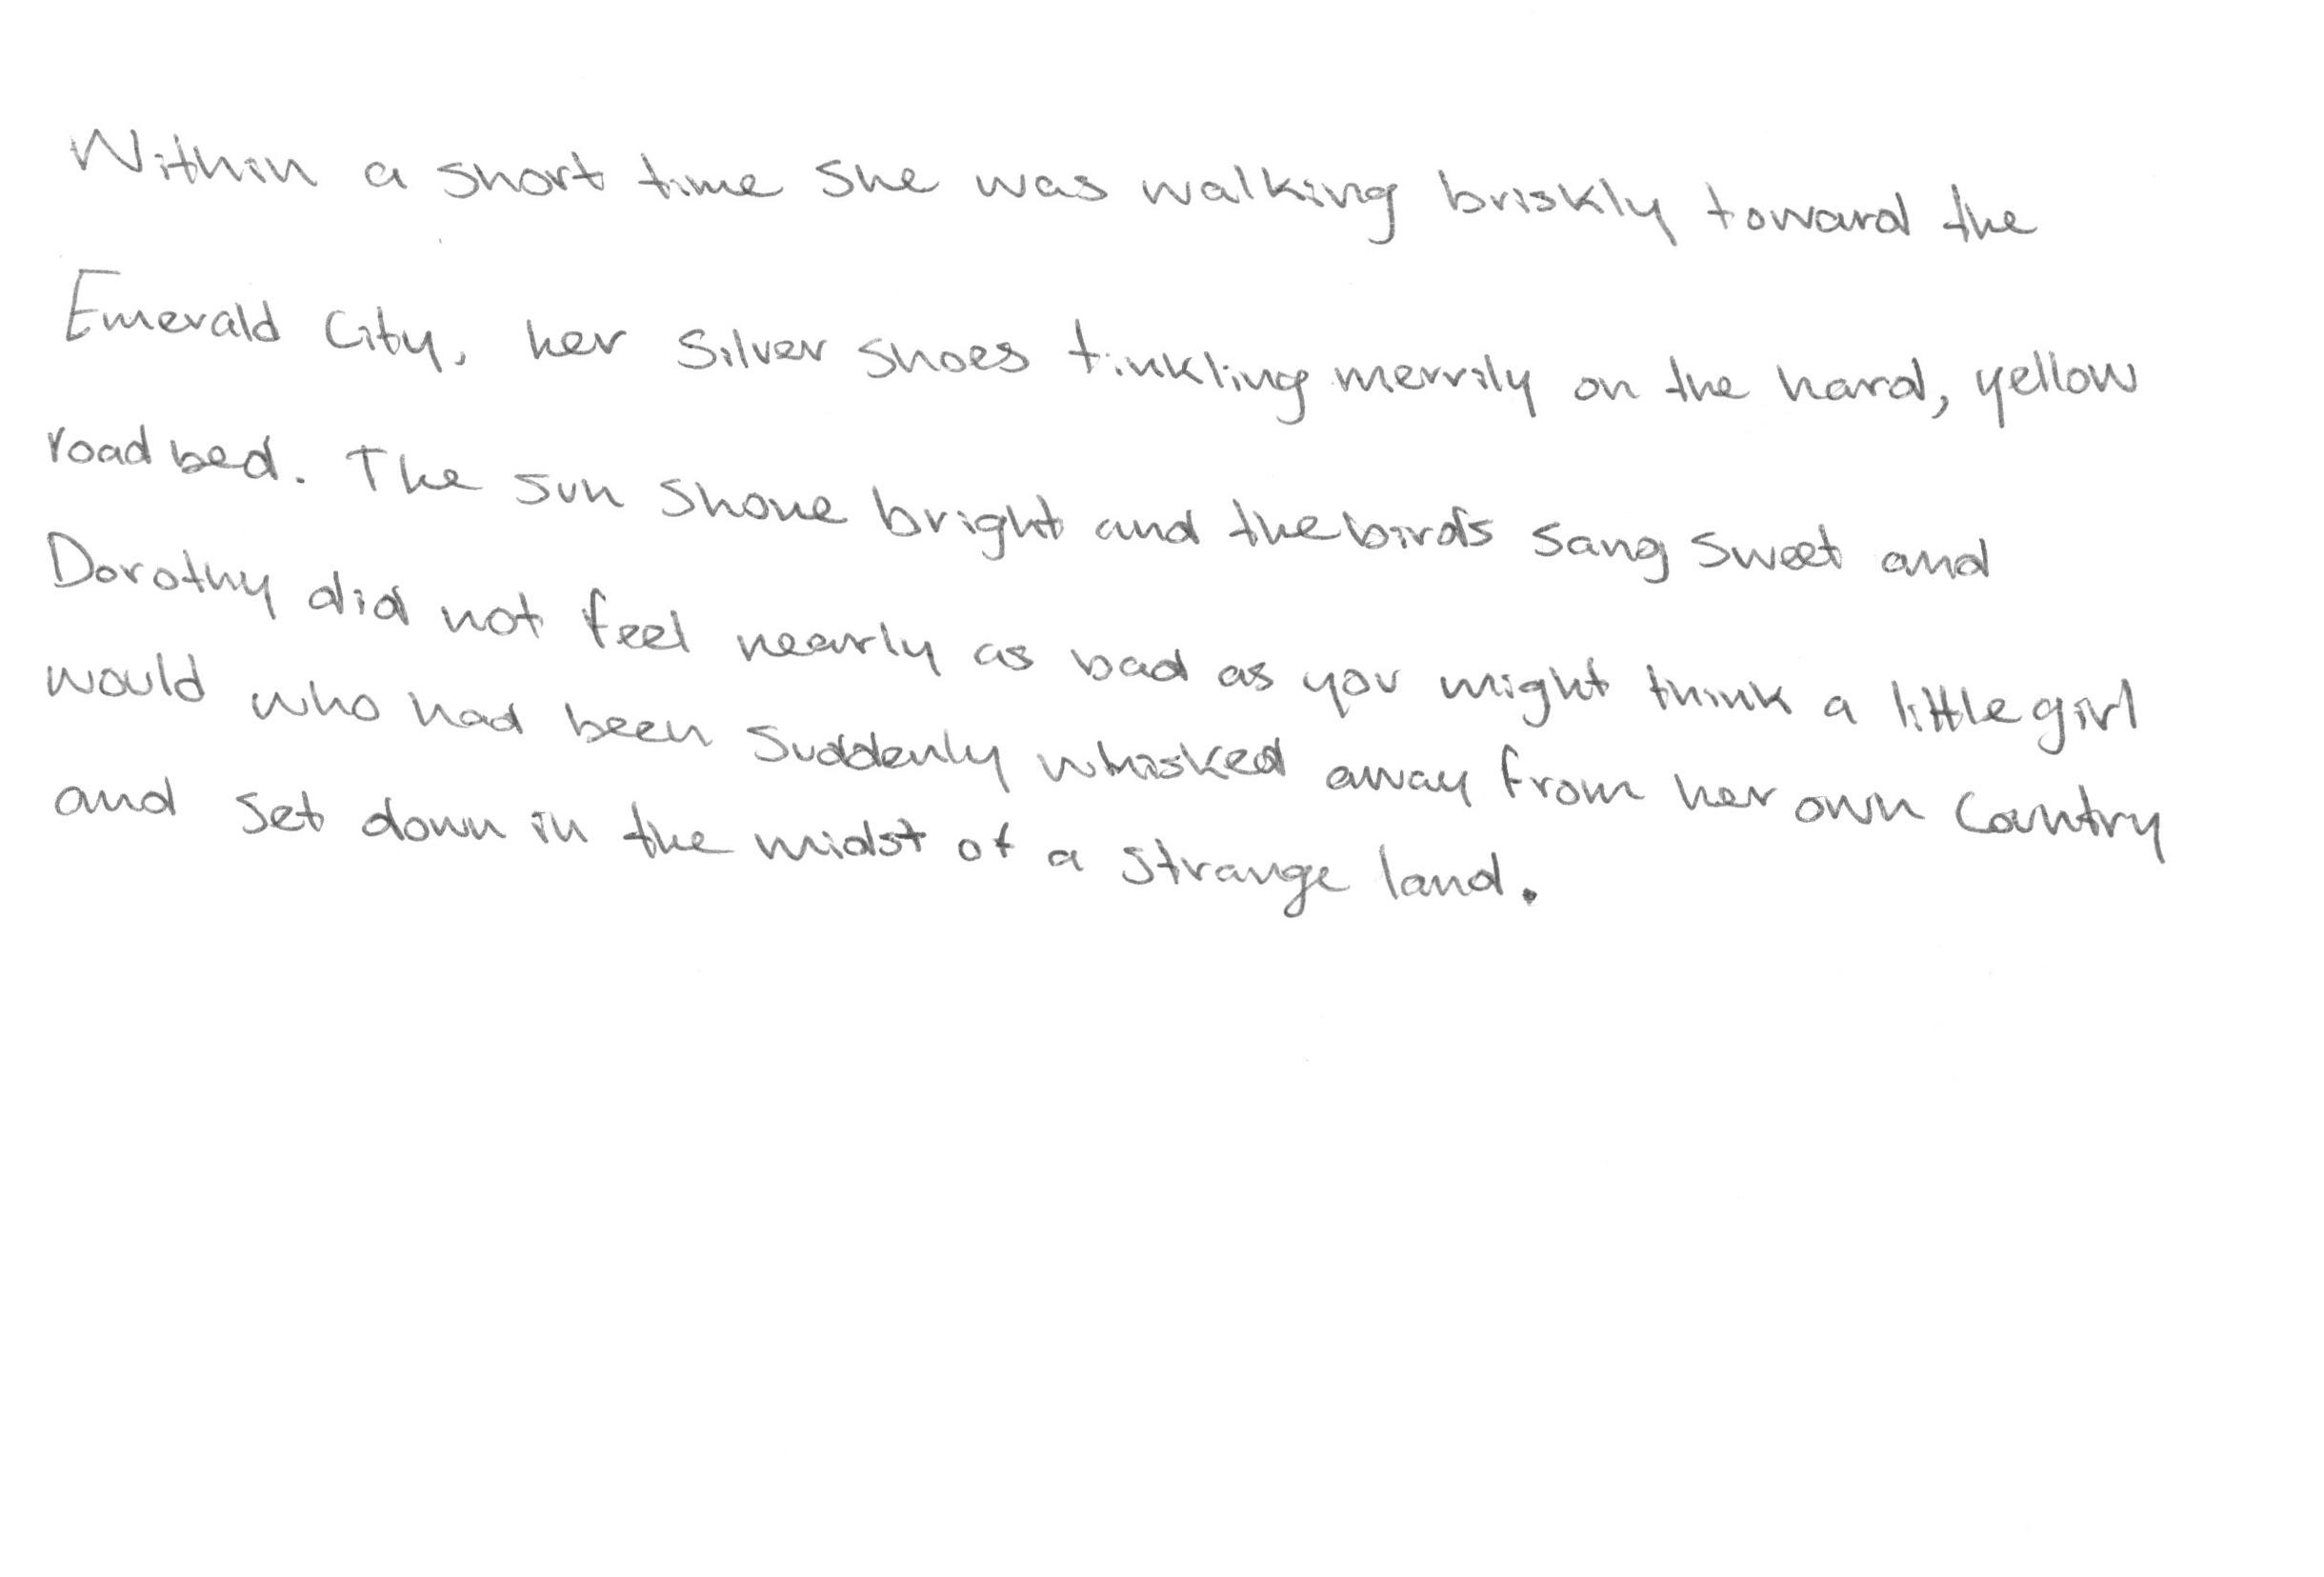 Within a short time she was walking briskly toward the
Emerald City, her silver shoes tinkling merrily on the hard, yellow
road bed. The sun shone bright and the birds sang sweet and
Dorothy did not feel nearly as bad as you might think a little girl
would who had been suddenly whisked away from her own country
and set down in the midst of a strange land.